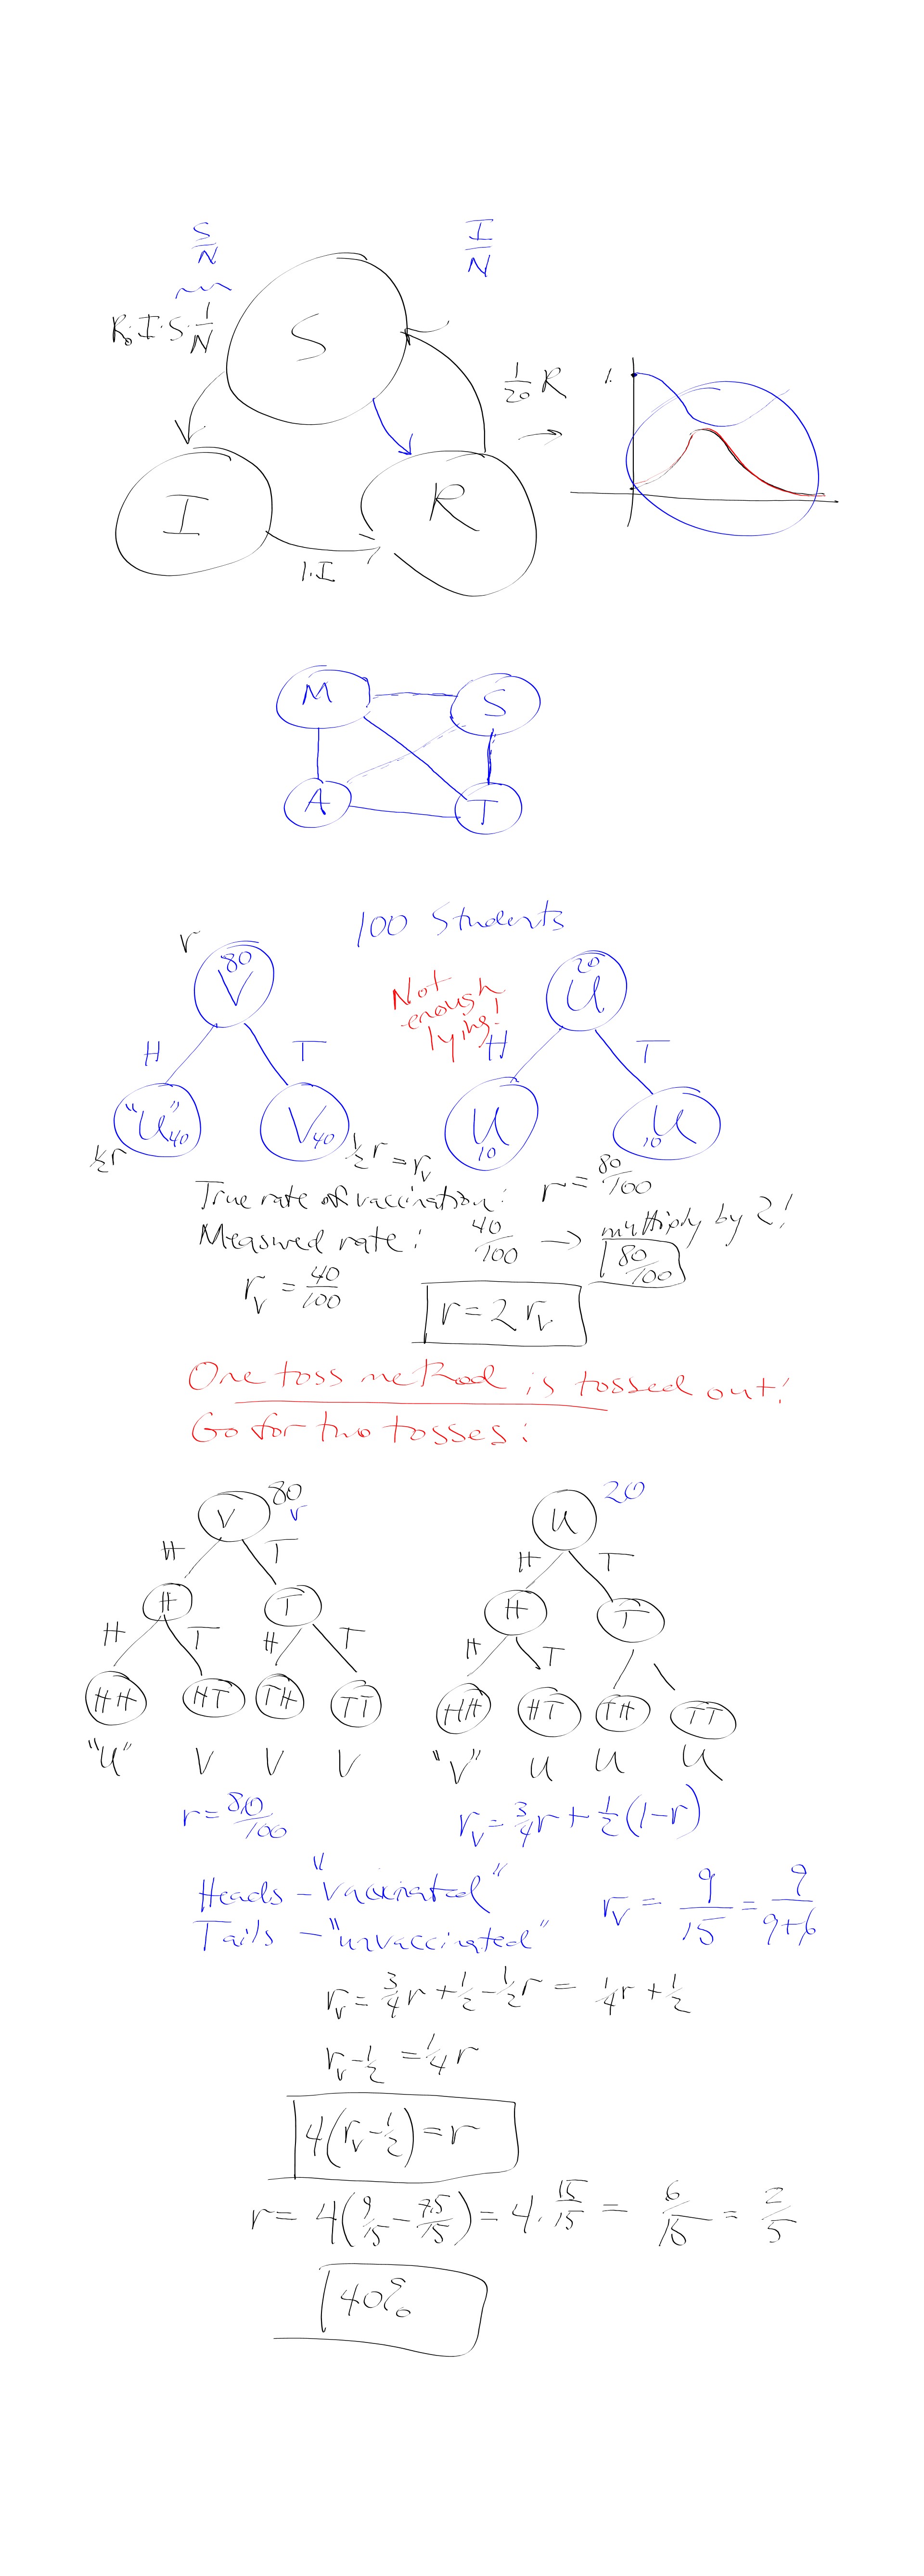 S/N
I/N
R₀·I·S·1/N
S
1/20 R
1.
I
R
1·I
M
S
A
T
100 Students
r
80
V
20
U
Not
enough
lying!
H
T
H
T
"U" 40
V 40
U 10
U 10
½r
½r = r_v
True rate of vaccination: r = 80/100
Measured rate: 40/100 → multiply by 2!
80/100
r_v = 40/100
r = 2 r_v
One toss method is tossed out!
Go for two tosses:
V
80
r
U
20
H
T
H
T
H
T
H
T
H
T
H
T
H
T
HH
HT
TH
TT
HH
HT
TH
TT
"U"
V
V
V
"V"
U
U
U
r = 80/100
r_v = 3/4 r + 1/2 (1-r)
Heads - "Vaccinated"
Tails - "unvaccinated"
r_v = 9/15 = 9/9+6
r_v = 3/4 r + 1/2 - 1/2 r = 1/4 r + 1/2
r_v - 1/2 = 1/4 r
4(r_v - 1/2) = r
r = 4(9/15 - 7.5/15) = 4 · 1.5/15 = 6/15 = 2/5
40%